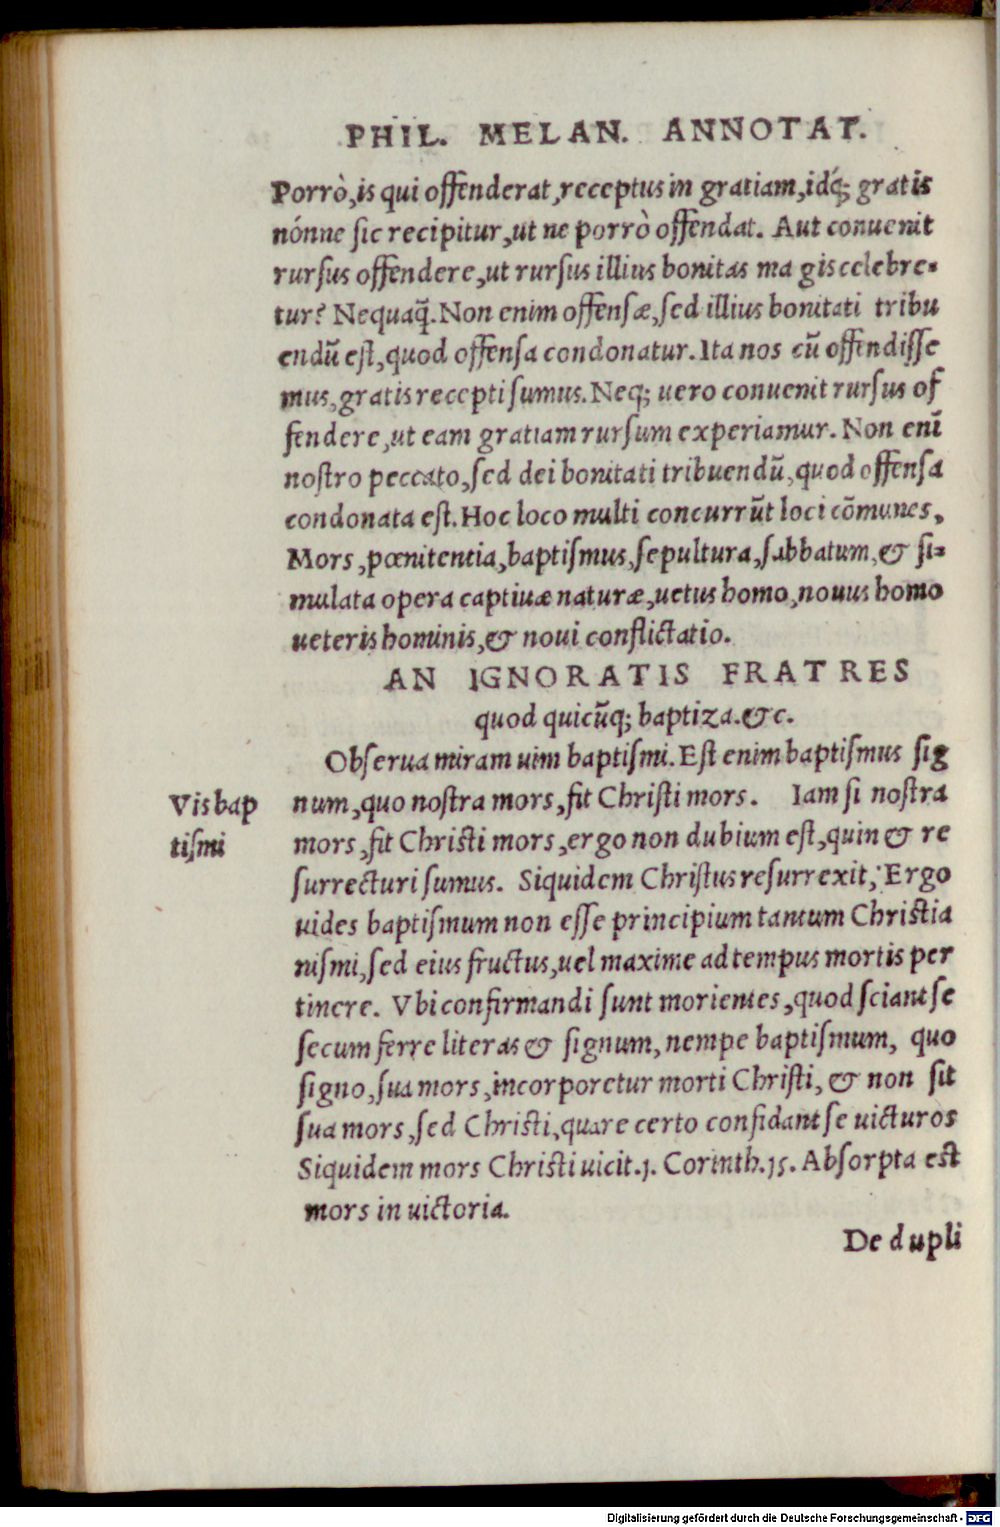 PHIL. MELAN. ANNOTAT.
Porrò, is qui offenderat, receptus in gratiam, idq́; gratis
nónne sic recipitur, ut ne porrò offendat. Aut conuenit
rursus offendere, ut rursus illius bonitas magis celebre-
tur? Nequaq̃. Non enim offensæ, sed illius bonitati tribu
endũ est, quod offensa condonatur. Ita nos cũ offendisse
mus, gratis recepti sumus. Neq; uero conuenit rursus of
fendere, ut eam gratiam rursum experiamur. Non enĩ
nostro peccato, sed dei bonitati tribuendũ, quod offensa
condonata est. Hoc loco multi concurrũt loci cõmunes,
Mors, pœnitentia, baptismus, sepultura, sabbatum, & si-
mulata opera captiuæ naturæ, uetus homo, nouus homo
ueteris hominis, & noui conflictatio.
AN IGNORATIS FRATRES
quod quicũq; baptiza. &c.
Obserua miram uim baptismi. Est enim baptismus sig
Vis bap
tismi
num, quo nostra mors, fit Christi mors. Iam si nostra
mors, fit Christi mors, ergo non dubium est, quin & re
surrecturi sumus. Siquidem Christus resurrexit, Ergo
uides baptismum non esse principium tantum Christia
nismi, sed eius fructus, uel maxime ad tempus mortis per
tinere. Vbi confirmandi sunt morientes, quod sciant se
secum ferre literas & signum, nempe baptismum, quo
signo, sua mors, incorporetur morti Christi, & non sit
sua mors, sed Christi, quare certo confidant se uicturos
Siquidem mors Christi uicit. 1. Corinth. 15. Absorpta est
mors in uictoria.
De dupli
Digitalisierung gefördert durch die Deutsche Forschungsgemeinschaft - DFG